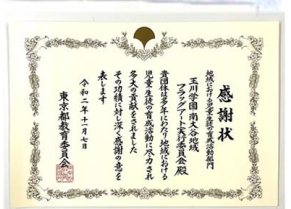 感謝状
地域における児童生徒の育成活動部門
玉川学園・南大谷地域
フラッグアート実行委員会 殿
貴団体は多年にわたり地域における
児童生徒の育成活動に尽力され
多大の貢献をされました
その功績に対し深く感謝の意を
表します
令和二年十一月七日
東京都教育委員会